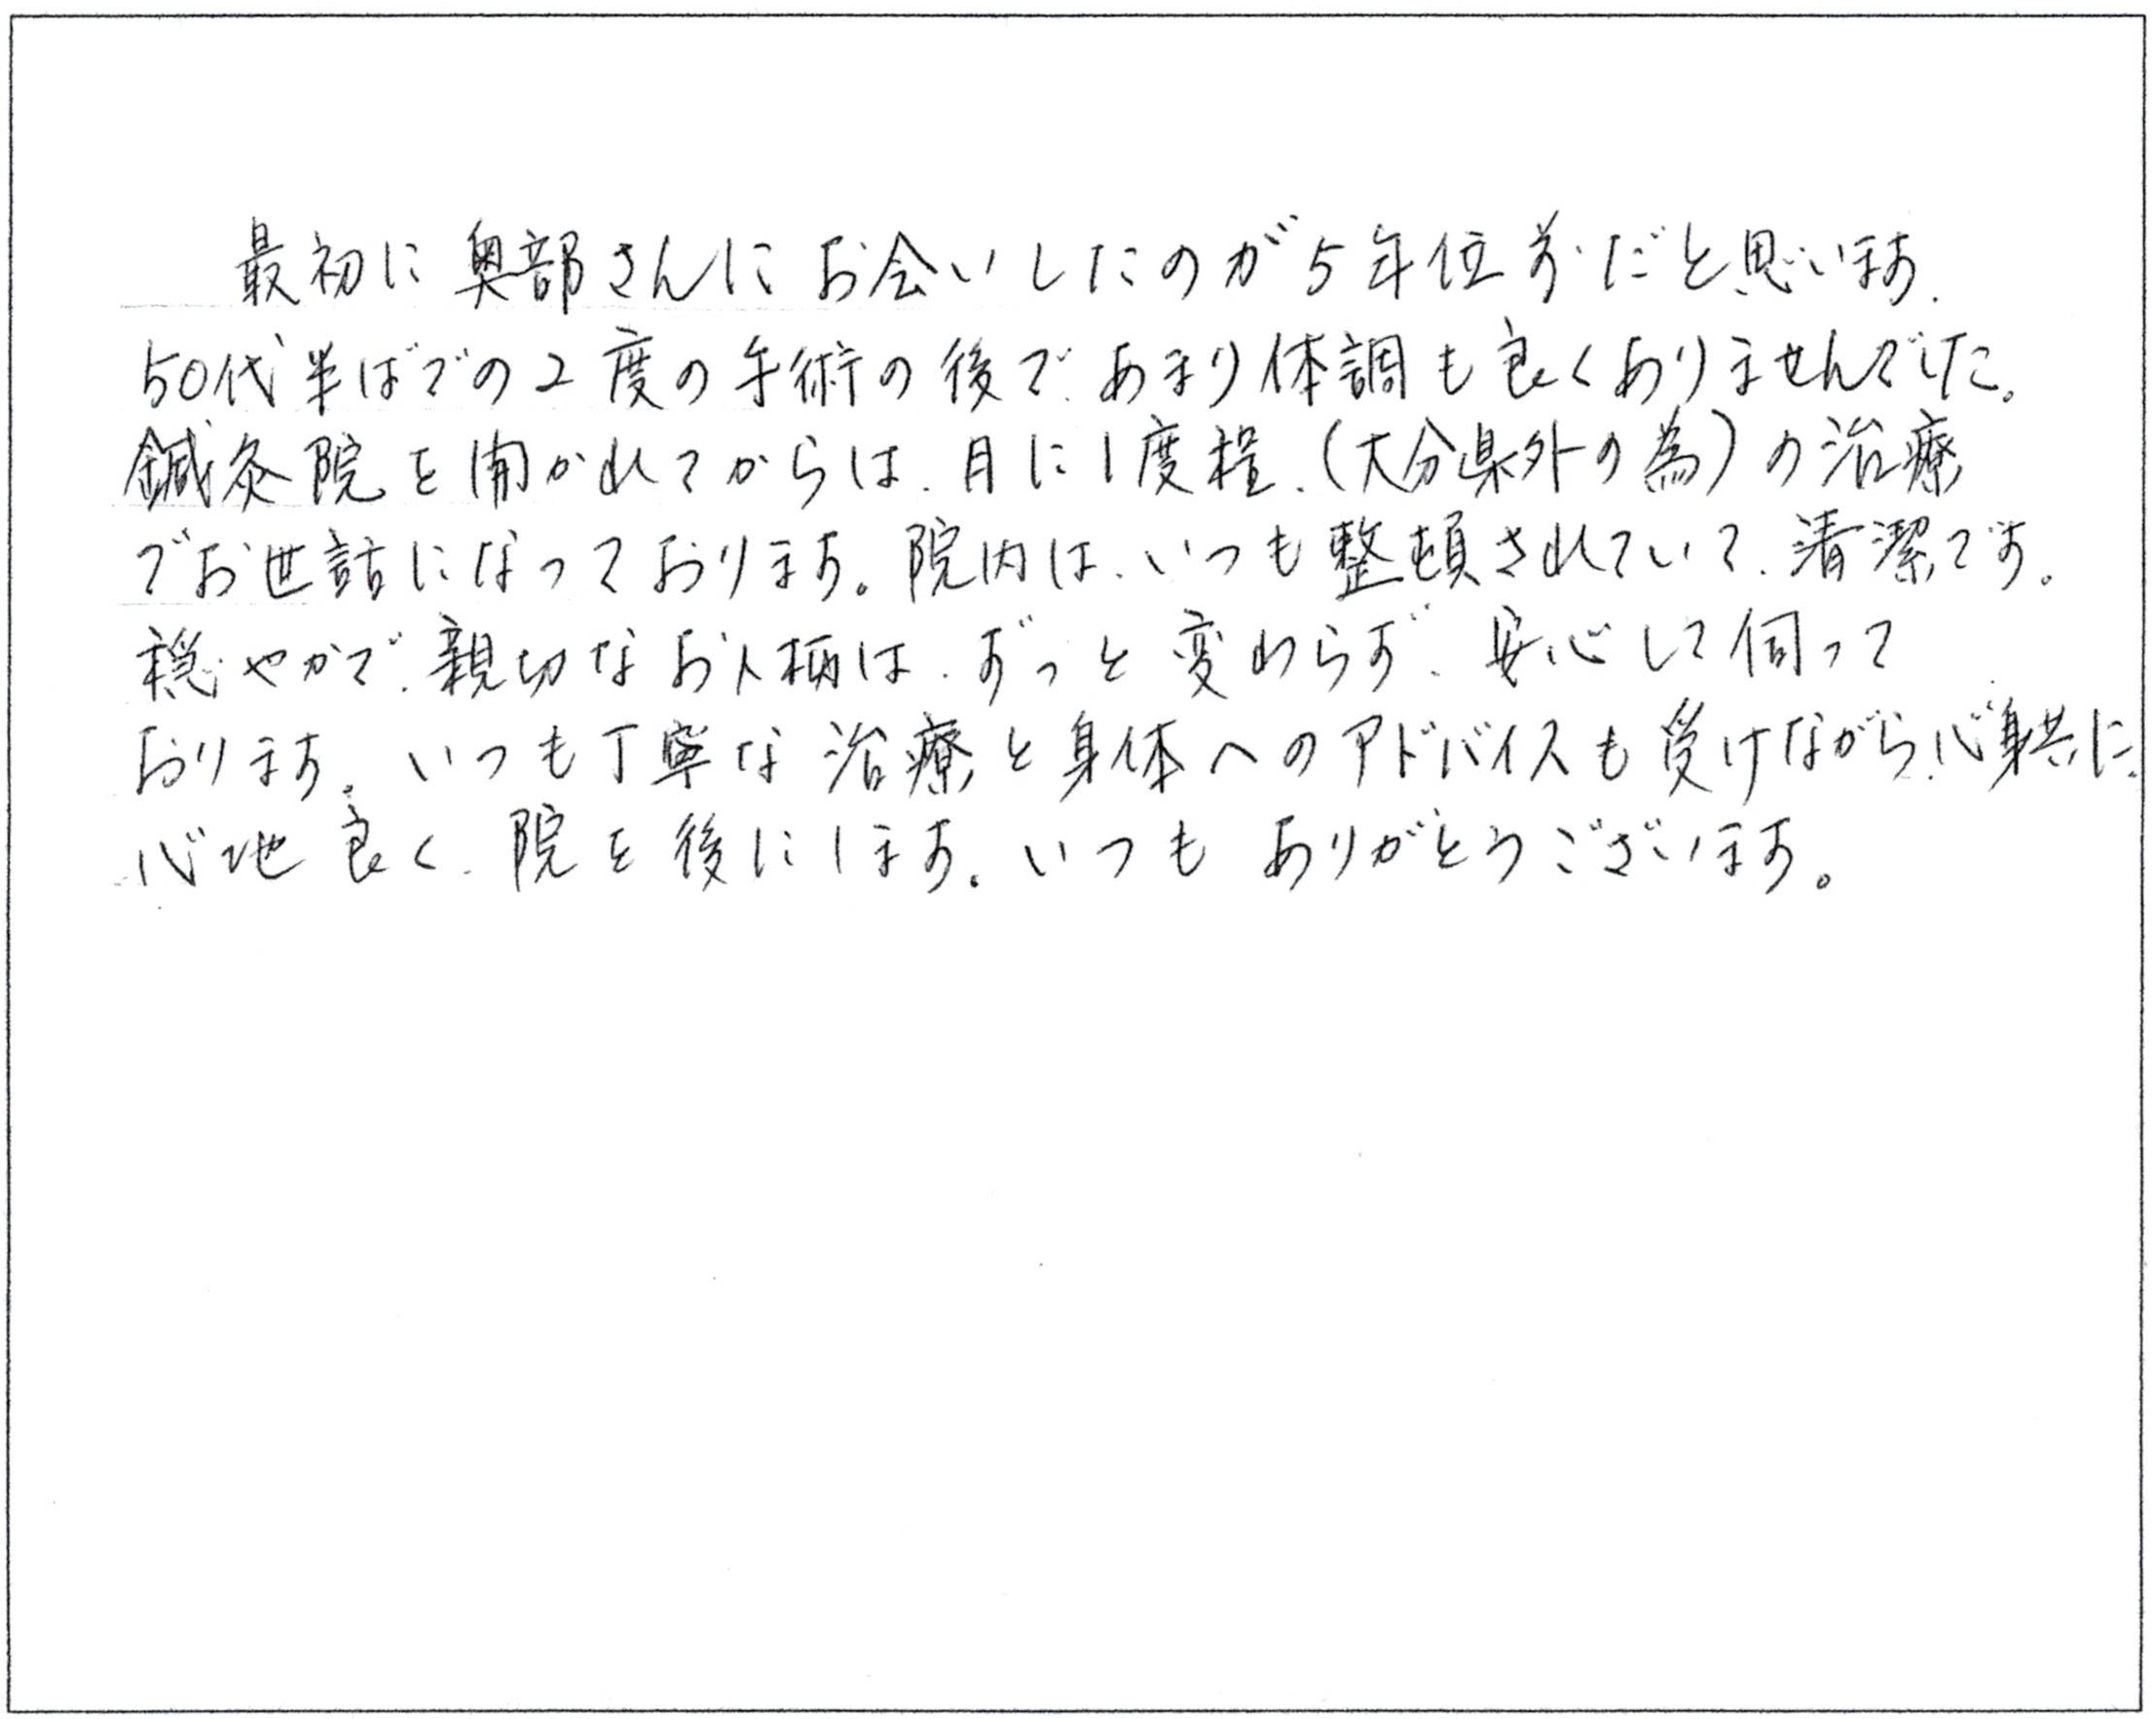 最初に奥部さんにお会いしたのが5年位前だと思います.
50代半ばでの2度の手術の後で、あまり体調も良くありませんでした。
鍼灸院を開かれてからは、月に1度程、(大分県外の為)の治療
でお世話になっております。院内は、いつも整頓されていて、清潔です。
穏やかで、親切なお人柄は、ずっと変わらず、安心して伺って
おります。いつも丁寧な治療と身体へのアドバイスも受けながら、心身共に、
心地良く、院を後にします。いつもありがとうございます。